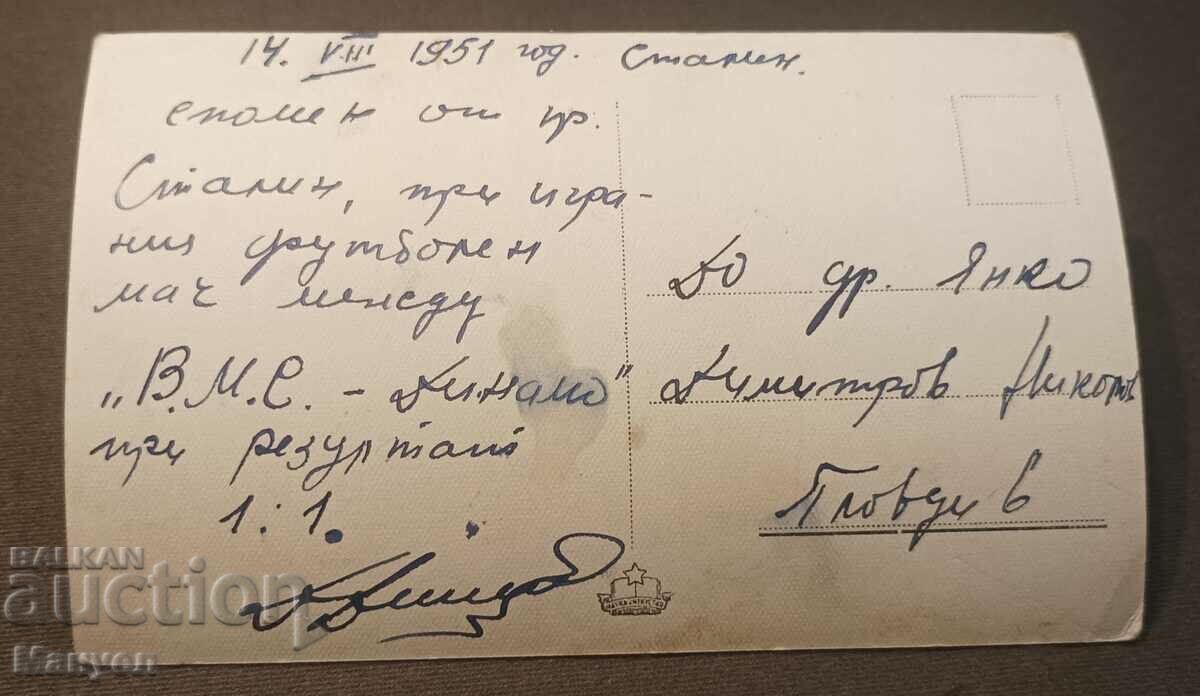 14. VIII 1951 год. Сталин.
спомен от гр.
Сталин, при игра-
ния футболен
мач между
„В.М.С. - Динамо"
при резултат
1:1.
До др. Янко
Димитров
Пловдив
BALKAN
auction
Manyou